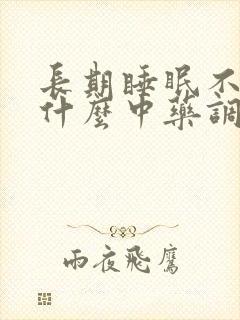 長期睡眠不
什麼中藥調
雨夜飛鷹